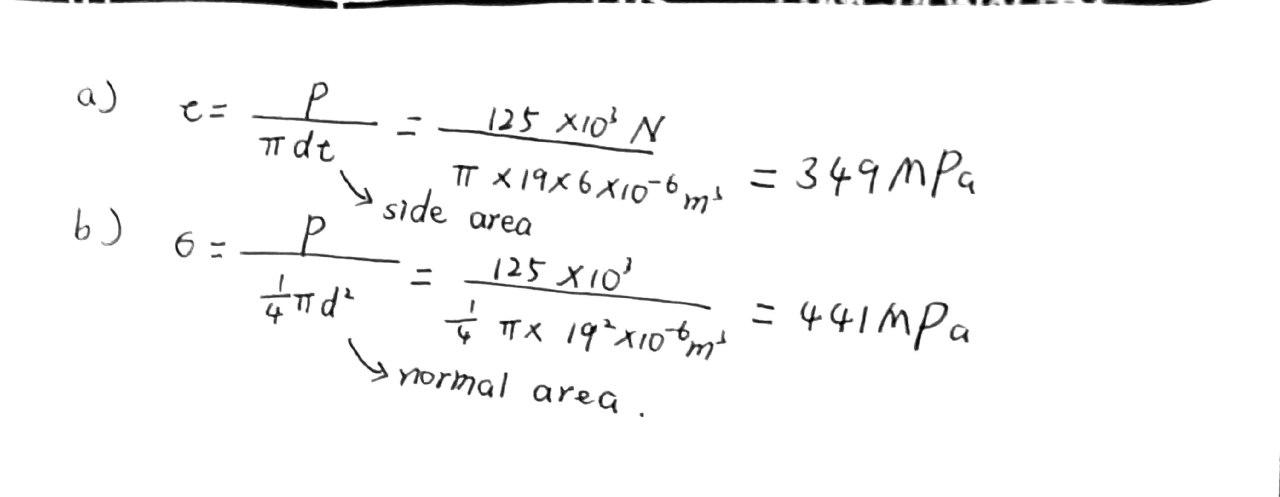 a) τ = P / πdt = 125 ×10³ N / π ×19×6×10⁻⁶ m² = 349 MPa
side area
b) σ = P / ¼πd² = 125 ×10³ / ¼ π× 19²×10⁻⁶ m² = 441 MPa
normal area.